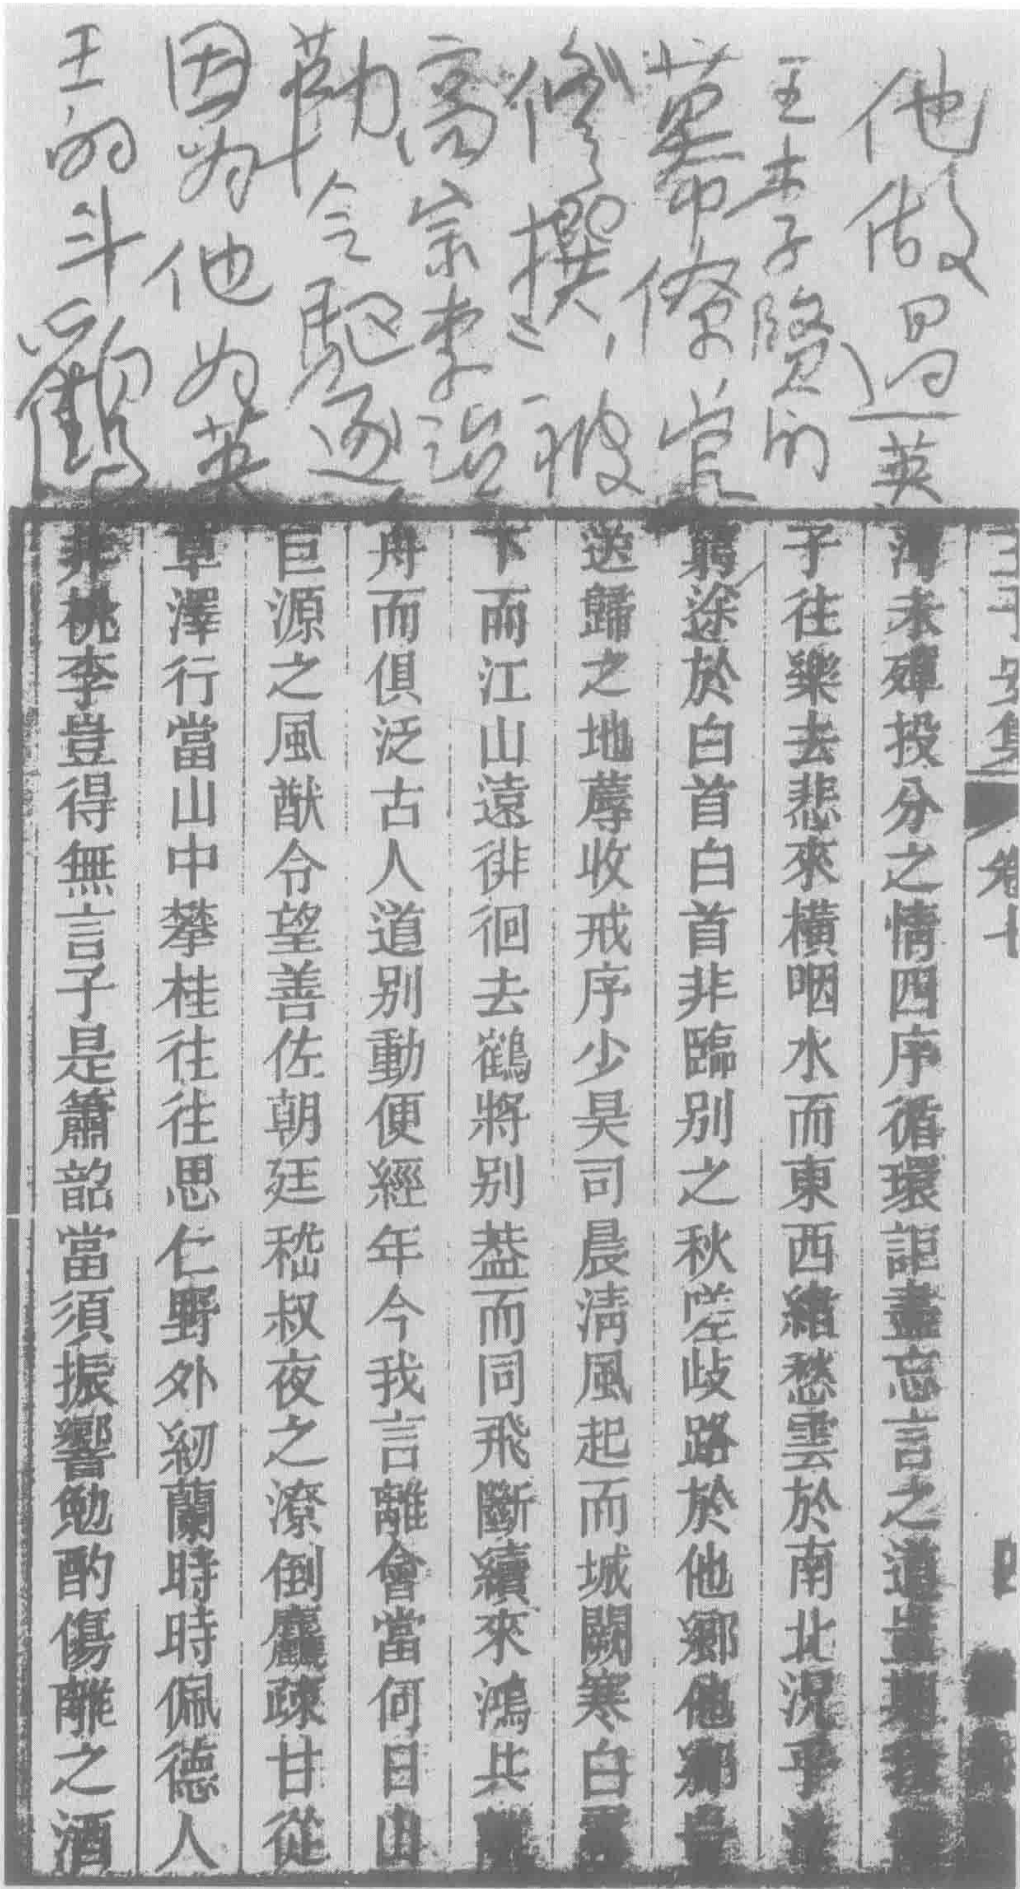 他做过英
王李子贤的
幕僚官
修撰，被
高宗李治
勒令驱逐
因为他为英
王的斗鸡
王子安集 卷七 四
未殫投分之情四序循環詎盡忘言之道豈期我
子往樂去悲來橫咽水而東西緒愁雲於南北況乎
窮途於白首白首非臨別之秋嗟歧路於他鄉他鄉
送歸之地蓐收戒序少昊司晨清風起而城闕寒白露
下而江山遠徘徊去鶴將別葢而同飛斷續來鴻共
舟而俱泛古人道别動便經年今我言離會當何日山
巨源之風猷令望善佐朝廷嵇叔夜之潦倒麤疎甘從
草澤行當山中攀桂往往思仁野外紉蘭時時佩德人
非桃李豈得無言子是簫韶當須振響勉酌傷離之酒